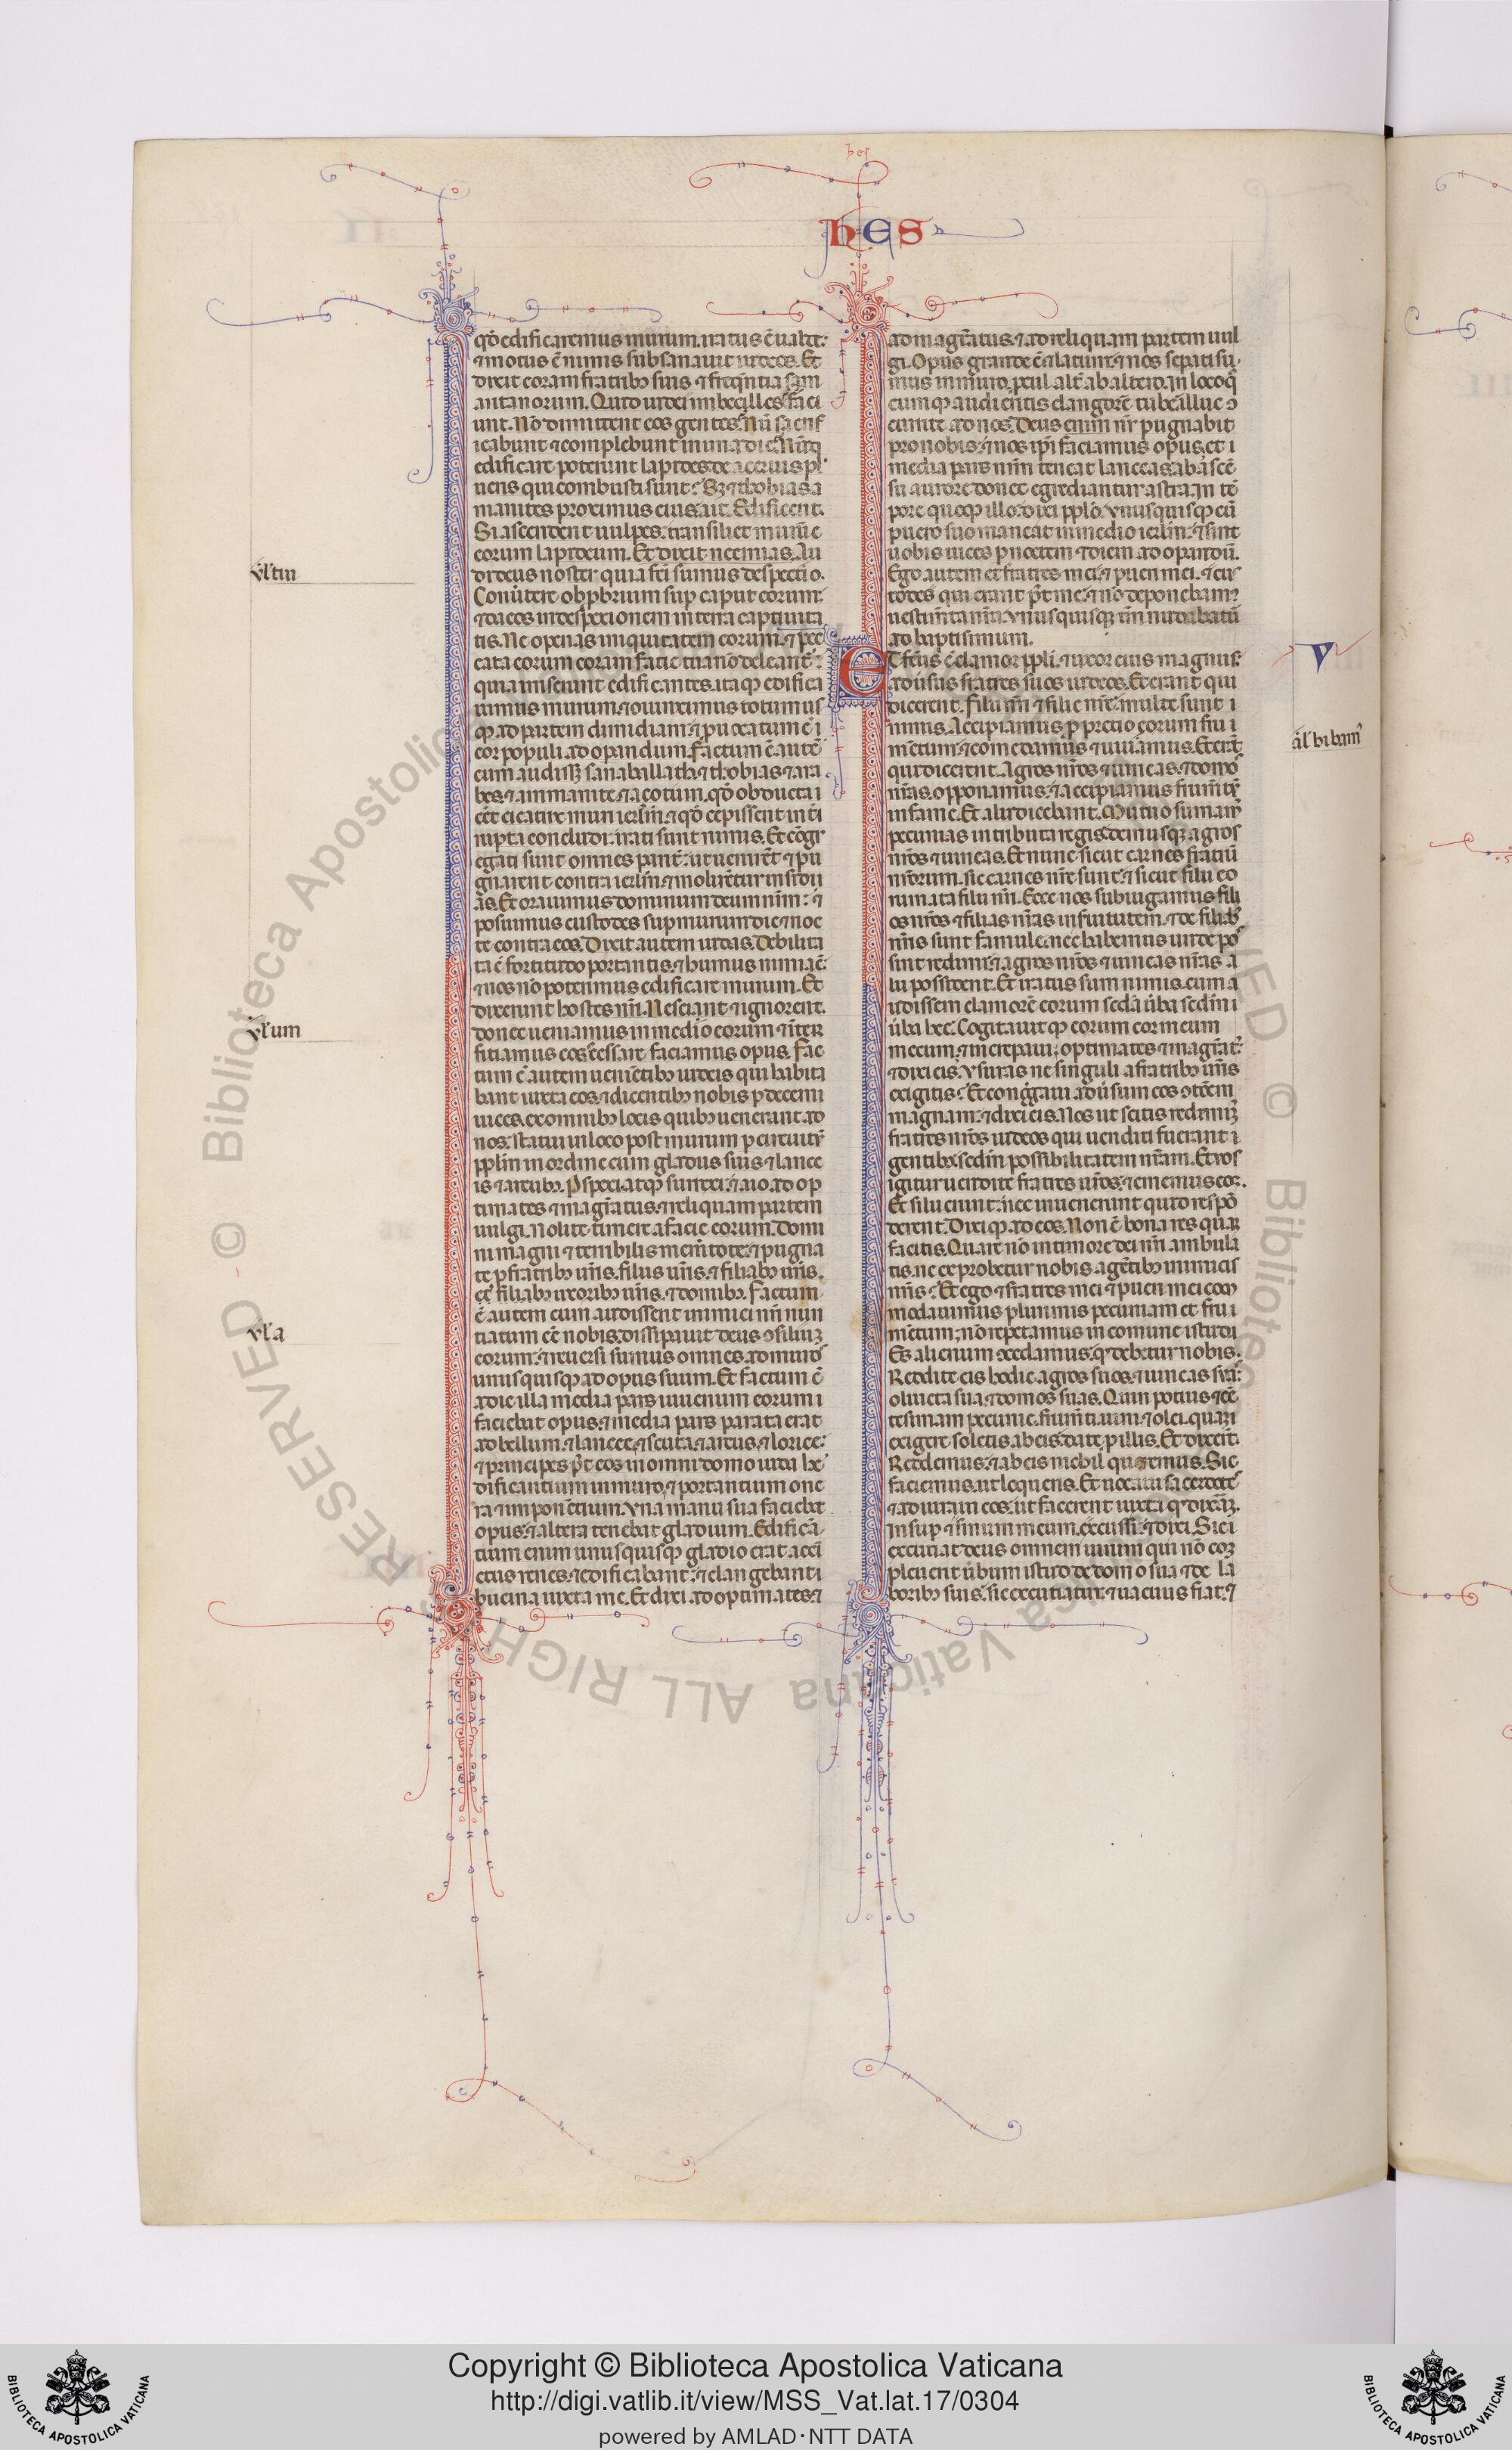 hes
hES
qđ edificaremus murum. iratus ē ualde:
⁊ motus ē nimis subsannauit iudeos. Et
dixit coram fratribȝ suis ⁊ freqn̄tia sam
aritanorum. Quid iudei imbecilles faci
unt. Nō dimittent eos gentes. Nū sacrif
icabunt ⁊ complebunt in una die. Nūqđ
edificare poterunt lapides de aceruis pl
ueris qui combusti sunt: Sꝫ ⁊ thobias a
manites proximus eius. ait. Edificent.
Si ascenderit uulpes. transiliet murū
eorum lapideum. Et dixit neemias. Au
di deus noster quia fc̄i sumus despectio.
Conuerte obpbrium sup caput eorum:
⁊ da eos in despexionem in terra captiuita
tis. Ne operias iniquitatem eorum. ⁊ pec
cata eorum coram facie tua nō deleant̄:
quia irriserunt edificantes. itaqꝫ edifica
uimus murum. ⁊ oiunximus totum us
qꝫ ad partem dimidiam. ⁊ puocatum ē
cor populi ad opandum. Factum ē autē
cum audissꝫ sanaballath ⁊ thobias ⁊ ara
bes. ⁊ ammanite. ⁊ acotum. qđ obducta
eēt cicatrix muri ierlm̄ ⁊ qđ cepissent int̄
rupta concludi. irati sunt nimis. Et cōgr
egati sunt omnes parit̄. ut uenirēt ⁊ pu
gnarent contra ierlm̄ ⁊ molirētur insidi
as. Et orauimus dominum deum nrm̄: ⁊
posuimus custodes sup murum die ⁊ noc
te contra eos. Dixit autem iudas. Debilita
ta ē fortitudo portantis. ⁊ humus nimia ē:
⁊ nos nō poterimus edificare murum. Et
dixerunt hostes nri. Nesciant ⁊ ignorent.
donec ueniamus in medio eorum ⁊ inter
ficiamus eos. ⁊ cessare faciamus opus. Fac
tum ē autem uenientibȝ iudeis qui habita
bant iuxta eos. ⁊ dicentibȝ nobis p decem
uices. ex omnibȝ locis quibȝ uenerant ad
nos. statui in loco post murum p circuitū
pplm̄ in ordine cum gladiis suis ⁊ lance
is ⁊ arcubȝ. Pspexi atqꝫ surrexi: ⁊ aio ad op
timates ⁊ magratus. ⁊ reliquam partem
uulgi. Nolite timere a facie eorum. Domi
ni magni ⁊ terribilis memtote. ⁊ pugna
te p fratribȝ uris. filiis uris. ⁊ filiabȝ uris.
⁊ uxoribȝ uris. ⁊ domibȝ. Factum
ē autem cum audissent inimici nri nun
tiatum eē nobis. dissipauit deus ɔsilium
eorum. ⁊ reuersi sumus omnes ad muros
unusquisqꝫ ad opus suum. Et factum ē
a die illa media pars iuuenum eorum
faciebat opus. ⁊ media pars parata erat
ad bellum. ⁊ lancee. ⁊ scuta. ⁊ arcus. ⁊ lorice:
⁊ principes pt eos in omni domo iuda he
dificantium in muro. ⁊ portantium one
ra ⁊ imponētium. Vna manu sua faciebat
opus. ⁊ altera tenebat gladium. Edificā
tium enim unusquisqꝫ gladio erat acci
ctus renes. ⁊ edificabant: ⁊ clangebant
bucina iuxta me. Et dixi ad optimates. ⁊
ad magratus. ⁊ ad reliquam partem uul
gi. Opus grande ē ⁊ latum. ⁊ nos sepati su
mus in muro. pcul alt̄ ab altero. In loco
cumqꝫ audieritis clangorē tube. illuc ɔ
currite ad nos. Deus enim nr pugnabit
pro nobis. ⁊ nos ipi faciamus opus. et
media pars nrm̄ teneat lanceas. ab ascē
su aurore donec egrediantur astra. In tē
pore quoqꝫ illo. dixi pplo. vnusquisqꝫ cū
puero suo maneat in medio ierlm̄: ⁊ sint
uobis uices p noctem ⁊ diem ad opandū.
Ego autem et fratres mei. ⁊ pueri mei. ⁊ cus
todes qui erant pt me. ⁊ nō deponebam
uestimta nra. vnusquisqꝫ tm̄ nudabatur
ad baptismum.
ET fcus ē clamor ppli. ⁊ uxor eius magnus:
aduersus fratres suos iudeos. Et erant qui
dicerent. Filii nri ⁊ filie nre. multe sunt
nimis. Accipiamus p precio eorum fru
mētum. ⁊ comedamus ⁊ uiuamus. Et erāt
qui dicerent. Agros nros ⁊ uineas. ⁊ domos
nras. opponamus. ⁊ accipiamus frumt̄
in fame. Et alii dicebant. Mutuo sumam
pecunias in tributa regis. demusqꝫ agros
nros ⁊ uineas. Et nunc sicut carnes fratrū
nrorum. sic carnes nre sunt. ⁊ sicut filii eo
rum. ita filii nri. Ecce nos subiugamus fili
os nros ⁊ filias nras in seruitutem. ⁊ de filiabȝ
nris sunt famule. nec habemus unde pos
sint redimi. ⁊ agros nros ⁊ uineas nras a
lii possident. Et iratus sum nimis. cum a
udissem clamorē eorum sedm uba
uba hec. Cogitauitqꝫ eorum cor meum
mecum. ⁊ increpaui optimates ⁊ magrat:
⁊ dixi eis. Vsuras ne singuli a fratribȝ uris
exigitis: Et congregaui aduersum eos ɔtōem
magnam. ⁊ dixi eis. Nos ut scitis redemimꝰ
fratres nros iudeos qui uenditi fuerant
gentibȝ. sedm possibilitatem nram. Et uos
igitur uendite fratres uros. ⁊ ememus eos.
Et siluerunt. nec inuenerunt quid respō
derent. Dixiqꝫ ad eos. Non ē bona res quam
facitis. Quare nō in timore dei nri ambula
tis. ne exprobetur nobis a gētibȝ inimicis
nris: Et ego ⁊ fratres mei ⁊ pueri mei com
modauimus plurimis pecuniam et fru
mētum. nō repetamus in comune istud
Es alienum ɔcedamus. qđ debetur nobis.
Reddite eis hodie agros suos. ⁊ uineas suas:
oliueta sua. ⁊ domos suas. Quin potius ⁊ cē
tesimam pecunie. frumti. uini. ⁊ olei. quam
exigere soletis ab eis. date p illis. Et dixert.
Reddemus. ⁊ ab eis nichil queremus. Sic
faciemus. ut loqueris. Et uocaui sacerdotes
⁊ adiuraui eos. ut facerent iuxta qđ dixeraꝫ.
Insup ⁊ sinum meum excussi. ⁊ dixi. Sic
excutiat deus omnem uirum qui nō com
pleuerit ubum istud de domo sua. ⁊ de la
boribȝ suis. sic excutiatur. ⁊ uacuus fiat. ⁊
V
al' bibam̄
vl' tiu
vl' um
vl' a
© Biblioteca Apostolica Vaticana ALL RIGHTS RESERVED
Copyright © Biblioteca Apostolica Vaticana
http://digi.vatlib.it/view/MSS_Vat.lat.17/0304
powered by AMLAD・NTT DATA
BIBLIOTECA APOSTOLICA VATICANA
BIBLIOTECA APOSTOLICA VATICANA